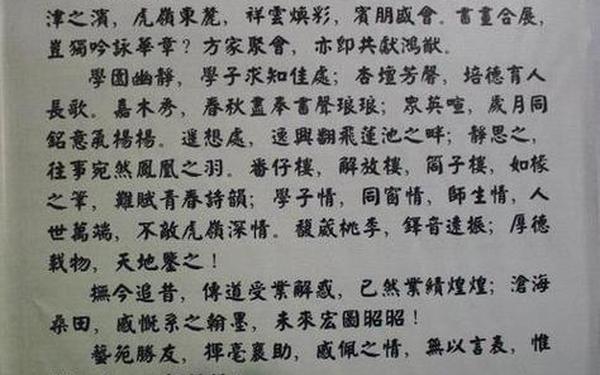 津之濱，虎嶺東麓，祥雲煥彩，賓朋盛會。書畫合展，
豈獨吟詠華章？方家聚會，亦即共獻鴻猷。
學園幽靜，學子求知佳處；杏壇芳馨，培德育人
長歌。嘉木秀，春秋盡奉書聲琅琅；眾英喧，歲月同
銘意氣楊楊。遥想處，逸興翻飛蓮池之畔；靜思之，
往事宛然鳳凰之羽。番仔樓，解放樓，筒子樓，如椽
之筆，難賦青春詩韻；學子情，同窗情，師生情，人
世萬端，不敵虎嶺深情。馥葳桃李，鐸音遠振；厚德
载物，天地鑒之！
撫今追昔，傳道受業解惑，已然業績煌煌；滄海
桑田，感慨系之翰墨，未來宏圖昭昭！
藝苑勝友，揮毫襄助，感佩之情，無以言表，惟